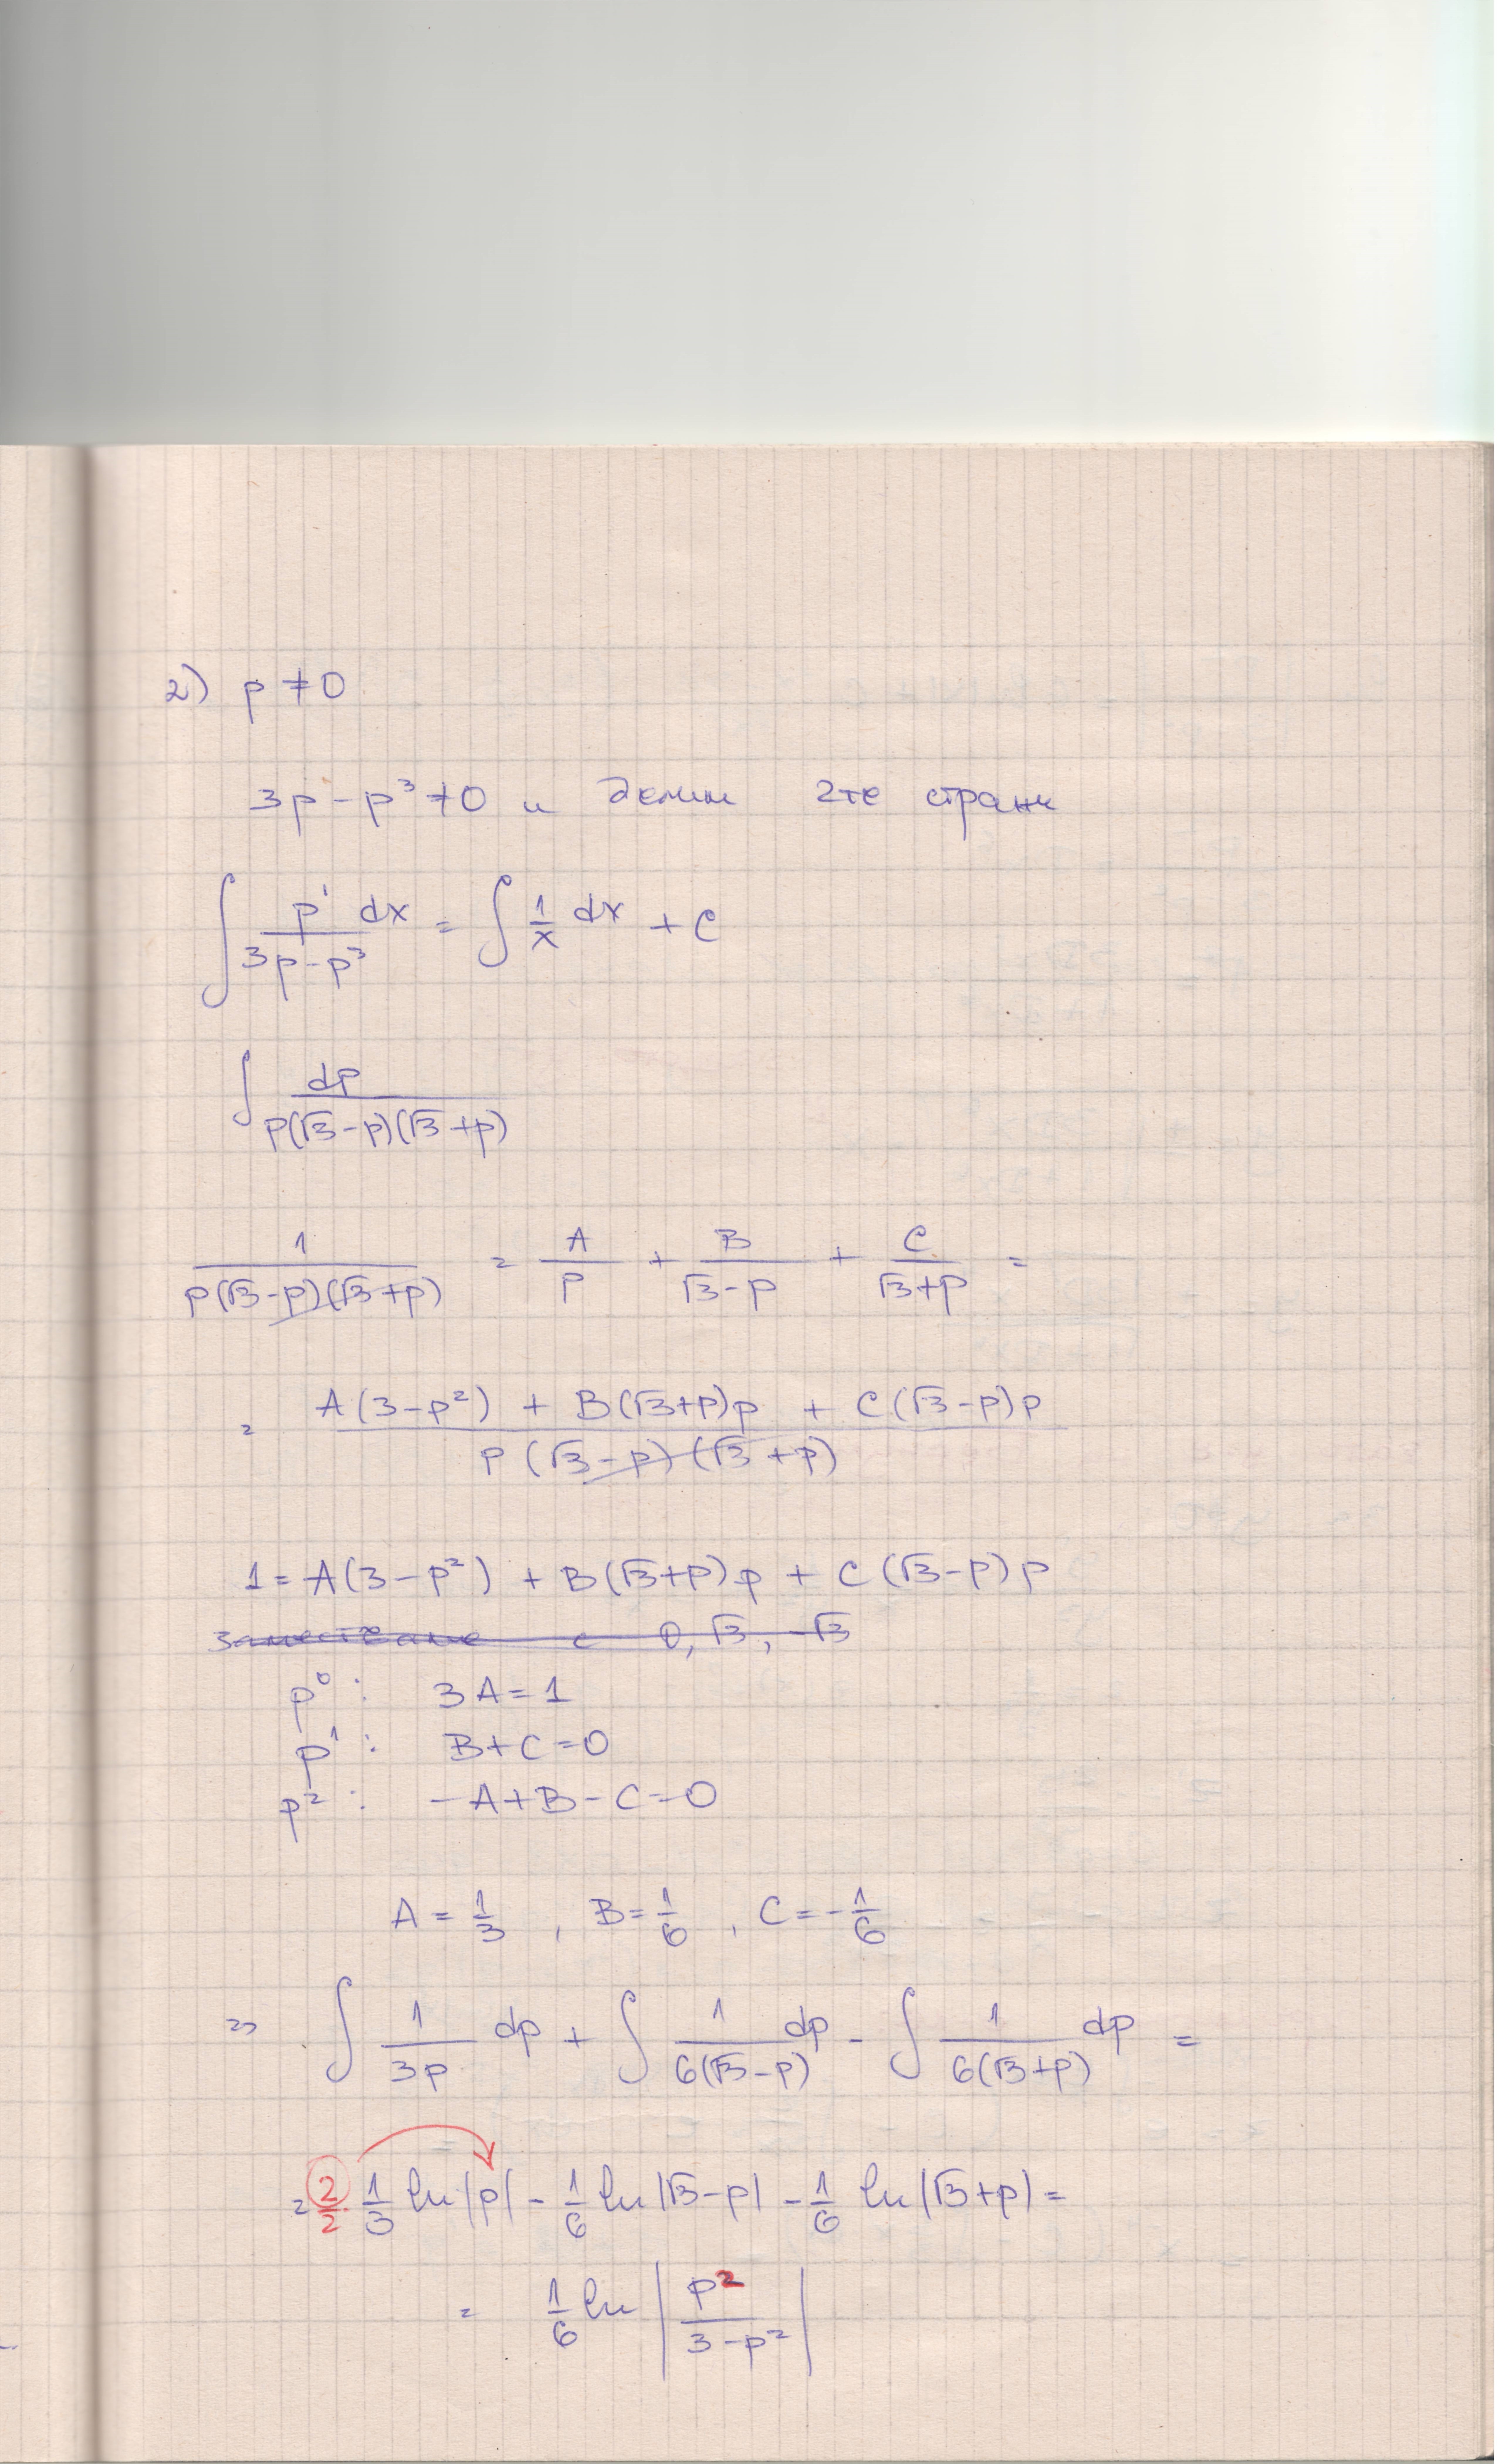 2) p ≠ 0
3p - p³ ≠ 0 и делим 2те страни
∫ p' dx / (3p - p³) = ∫ 1/x dx + C
∫ dp / (p(√3-p)(√3+p))
1 / (p(√3-p)(√3+p)) = A/p + B/(√3-p) + C/(√3+p) =
= (A(3-p²) + B(√3+p)p + C(√3-p)p) / (p(√3-p)(√3+p))
1 = A(3-p²) + B(√3+p)p + C(√3-p)p
заместваме с 0, √3, -√3
p⁰: 3A = 1
p¹: B+C = 0
p²: -A+B-C = 0
A = 1/3, B = 1/6, C = -1/6
=> ∫ 1/(3p) dp + ∫ 1/(6(√3-p)) dp - ∫ 1/(6(√3+p)) dp =
= 2/2 · 1/3 ln|p| - 1/6 ln|√3-p| - 1/6 ln|√3+p| =
= 1/6 ln |p²/(3-p²)|